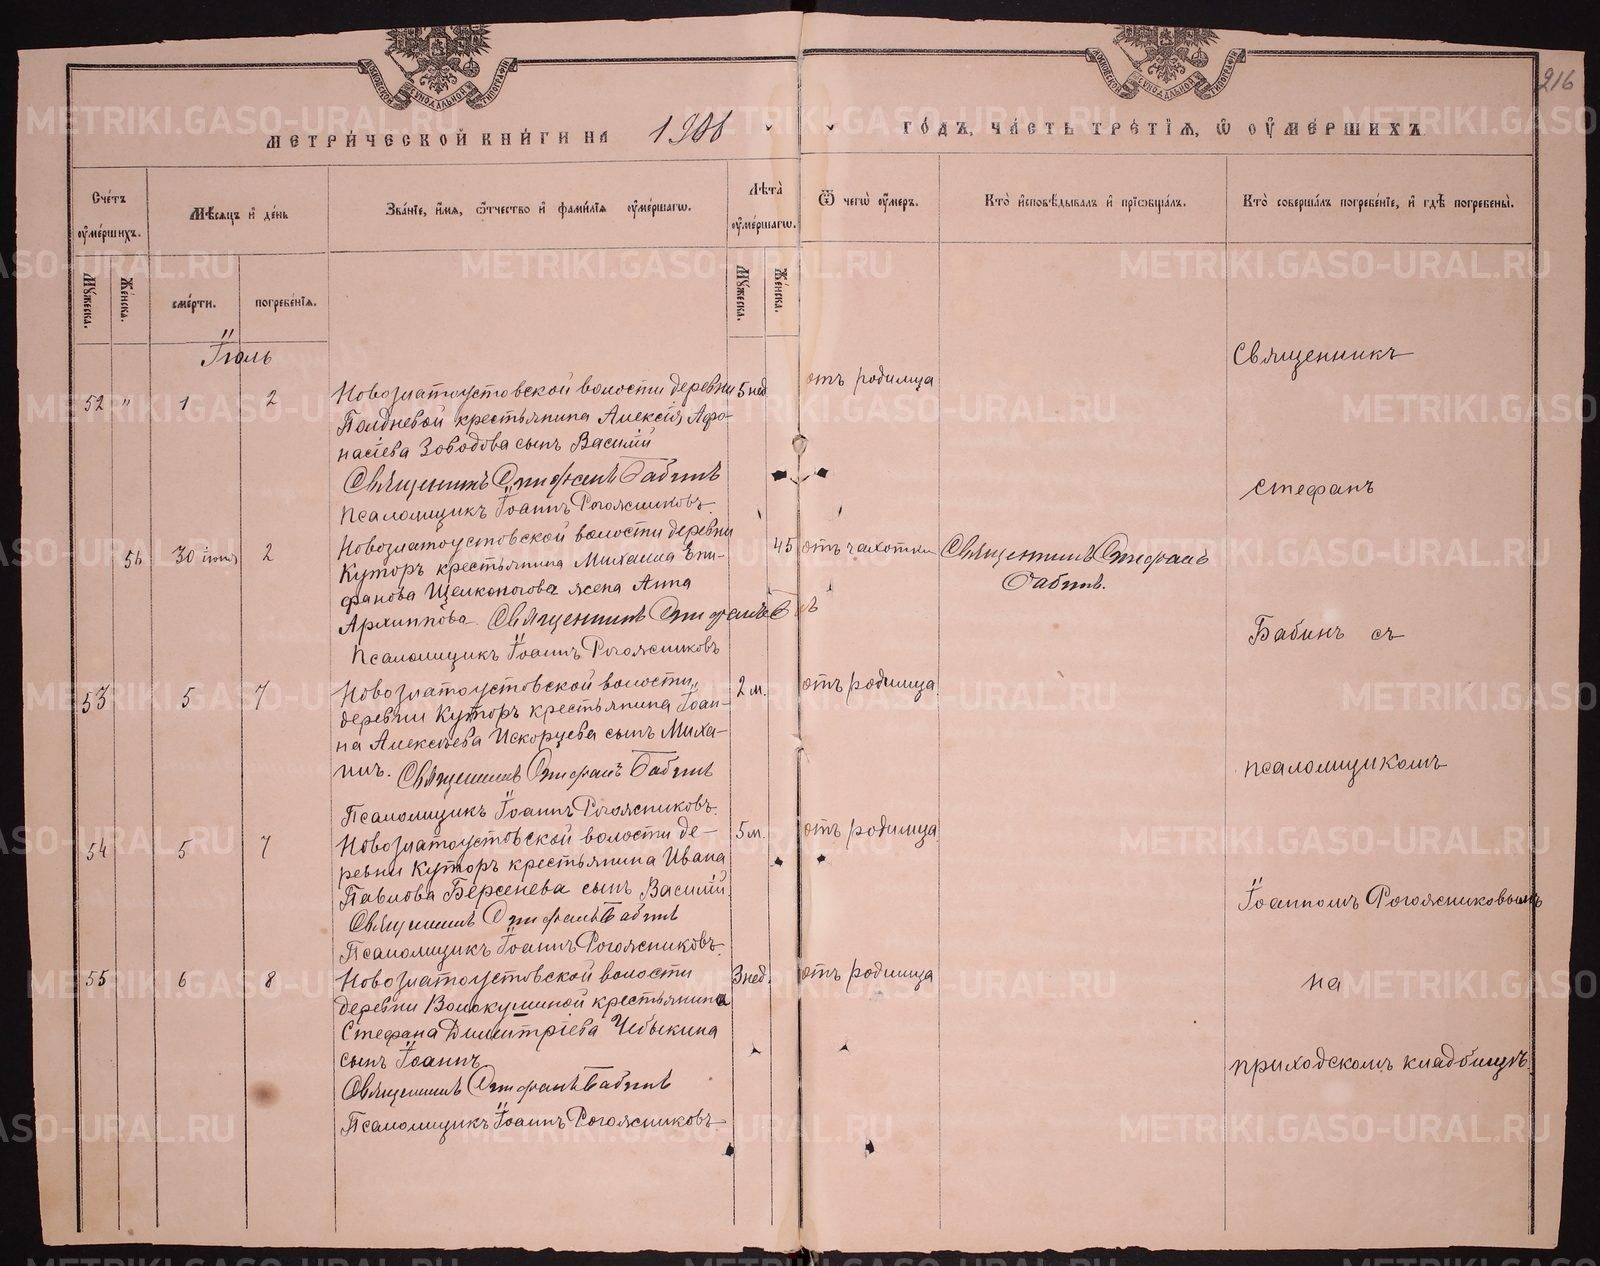 МЕТРИ́ЧЕСКОЙ КНИ́ГИ НА 1906 ГО́ДЪ, ЧА́СТЬ ТРЕ́ТІѦ, Ѡ ОУ҆МЕ́РШИХЪ
216
МОСКОВСКОЙ СѴНОДАЛЬНОЙ ТИПОГРАФІИ
МОСКОВСКОЙ СѴНОДАЛЬНОЙ ТИПОГРАФІИ
Сче́тъ оу҆ме́ршихъ.
Мꙋ́жеска.
Же́нска.
Мѣ́сѧцъ и҆ де́нь
сме́рти.
погребе́нїѧ.
Зва́нїе, и҆́мѧ, ѻ҆́тчество и҆ фами́лїѧ оу҆ме́ршагѡ.
Лѣ́та оу҆ме́ршагѡ.
Мꙋ́жеска.
Же́нска.
Ѿ чегѡ̀ оу҆́меръ.
Кто̀ и҆сповѣ́дывалъ и҆ прїѡбща́лъ.
Кто̀ соверша́лъ погребе́нїе, и҆ гдѣ̀ погребены̀.
Іюль
52 " 1 2
Новозлатоустовской волости деревни
Полдневой крестьянина Алексія Афо-
насіева Зоводова сынъ Василій
Священникъ Стефанъ Бабинъ
Псаломщикъ Іоаннъ Рогожниковъ.
5 нед.
отъ родимца
56 30 іюня 2
Новозлатоустовской волости деревни
Куторъ крестьянина Михаила Епи-
фанова Щелконогова жена Анна
Архиппова. Священникъ Стефанъ
Псаломщикъ Іоаннъ Рогожниковъ
45
отъ чахотки
Священникъ Стефанъ
Бабинъ.
53 5 7
Новозлатоустовской волости
деревни Куторъ крестьянина Іоан-
на Алексѣева Искорцева сынъ Миха-
илъ. Священникъ Стефанъ Бабинъ
Псаломщикъ Іоаннъ Рогожниковъ.
2 м.
отъ родимца
54 5 7
Новозлатоустовской волости де-
ревни Куторъ крестьянина Ивана
Павлова Берсенева сынъ Василій
Священникъ Стефанъ Бабинъ
Псаломщикъ Іоаннъ Рогожниковъ.
5 м.
отъ родимца
55 6 8
Новозлатоустовской волости
деревни Волокушиной крестьянина
Стефана Димитріева Чебыкина
сынъ Іоаннъ
Священникъ Стефанъ Бабинъ
Псаломщикъ Іоаннъ Рогожниковъ.
3 нед.
отъ родимца
Священникъ
Стефанъ
Бабинъ съ
псаломщикомъ
Іоанномъ Рогожниковымъ
на
приходскомъ кладбищѣ.
METRIKI.GASO-URAL.RU